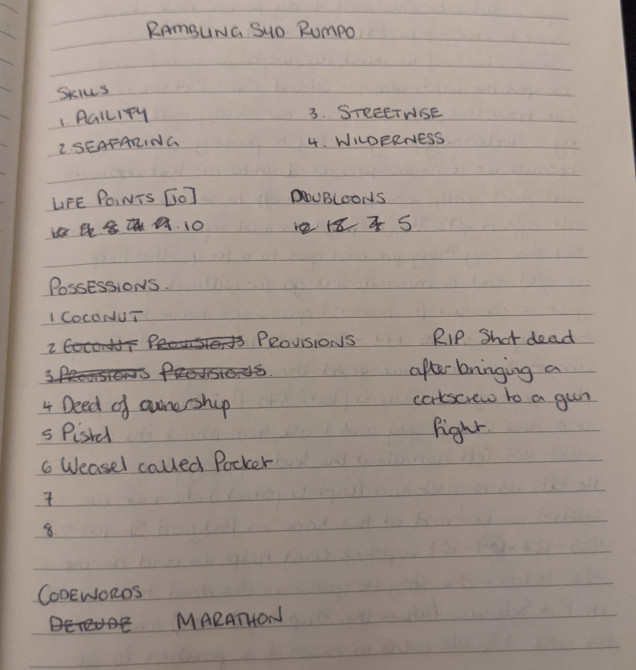 RAMBLING SYD RUMPO
SKILLS
1. AGILITY 3. STREETWISE
2. SEAFARING 4. WILDERNESS
LIFE POINTS [10] DOUBLOONS
8 10 12 5
POSSESSIONS.
1 COCONUT
2 COCONUT PROVISIONS PROVISIONS
3 PROVISIONS PROVISIONS.
4 Deed of ownership
5 Pistol
6 Weasel called Pocket
7
8
RIP. Shot dead
after bringing a
corkscrew to a gun
fight.
CODEWORDS
DETRUDE MARATHON